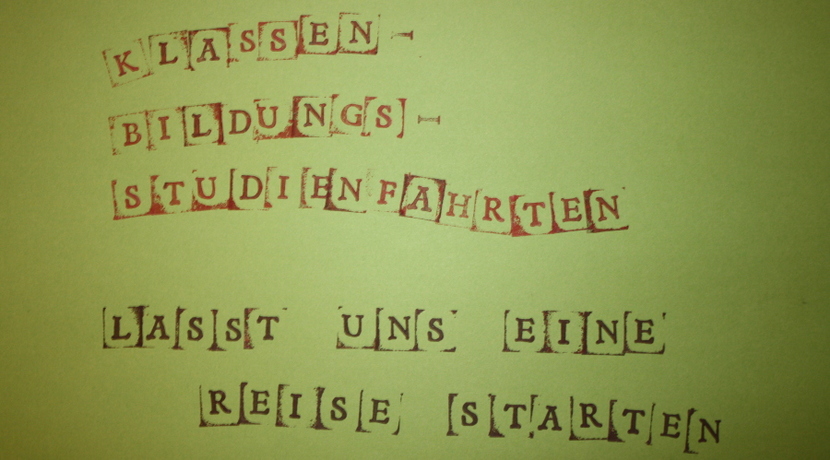 KLASSEN-
BILDUNGS-
STUDIENFAHRTEN
LASST UNS EINE
REISE STARTEN